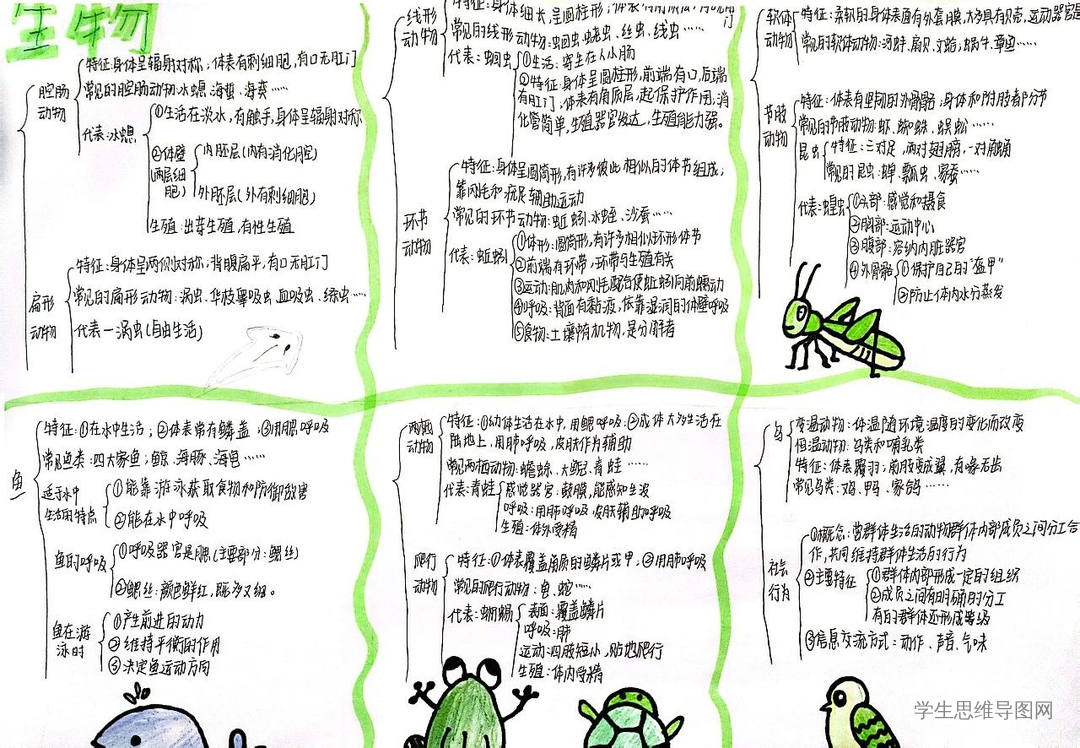 生物
腔肠动物
特征:身体呈辐射对称;体表有刺细胞,有口无肛门
常见的腔肠动物:水螅、海蜇、海葵……
代表:水螅
①生活在淡水,有触手,身体呈辐射对称
②体壁(两层细胞)
内胚层(内有消化腔)
外胚层(外有刺细胞)
生殖:出芽生殖,有性生殖
扁形动物
特征:身体呈两侧对称;背腹扁平,有口无肛门
常见的扁形动物:涡虫、华枝睾吸虫、血吸虫、绦虫……
代表—涡虫(自由生活)
线形动物
特征:身体细长,呈圆柱形;体表有角质层;有口有肛门
常见的线形动物:蛔虫、蛲虫、丝虫、线虫……
代表:蛔虫
①生活:寄生在人小肠
②特征:身体呈圆柱形,前端有口,后端
有肛门,体表有角质层,起保护作用,消
化管简单,生殖器官发达,生殖能力强。
环节动物
特征:身体呈圆筒形,有许多彼此相似的体节组成;
靠刚毛和疣足辅助运动
常见的环节动物:蚯蚓、水蛭、沙蚕……
代表:蚯蚓
①体形:圆筒形,有许多相似环形体节
②前端有环带,环带与生殖有关
③运动:肌肉和刚毛配合使蚯蚓向前蠕动
④呼吸:背面有黏液,依靠湿润的体壁呼吸
⑤食物:土壤中有机物,是分解者
软体动物
特征:柔软的身体表面有外套膜,大多具有贝壳,运动器官是
常见的软体动物:河蚌、扇贝、文蛤、蜗牛、章鱼……
节肢动物
特征:体表有坚韧的外骨骼,身体和附肢都分节
常见的节肢动物:虾、蜘蛛、蜈蚣……
昆虫
特征:三对足,两对翅膀,一对触角
常见的昆虫:蝉、瓢虫、家蚕……
代表:蝗虫
①头部:感觉和摄食
②胸部:运动中心
③腹部:容纳内脏器官
④外骨骼
①保护自己的“盔甲”
②防止体内水分蒸发
鱼
特征:①在水中生活;②体表常有鳞盖;③用腮呼吸
常见鱼类:四大家鱼;鲸、海豚、海兽……
适于水中生活的特点
①能靠游泳获取食物和防御敌害
②能在水中呼吸
鱼的呼吸
①呼吸器官是腮(主要部分:鳃丝)
②鳃丝:颜色鲜红,既多又细。
鱼在游泳时
①产生前进的动力
②维持平衡的作用
③决定鱼运动方向
两栖动物
特征:①幼体生活在水中,用鳃呼吸;②成体大多生活在
陆地上,用肺呼吸,皮肤作为辅助
常见两栖动物:蟾蜍、大鲵、青蛙……
代表:青蛙
感觉器官:鼓膜,能感知生波
呼吸:用肺呼吸,皮肤辅助呼吸
生殖:体外受精
爬行动物
特征:①体表覆盖角质的鳞片或甲,②用肺呼吸
常见的爬行动物:龟、蛇……
代表:蜥蜴
表面:覆盖鳞片
呼吸:肺
运动:四肢短小,贴地爬行
生殖:体内受精
鸟
变温动物:体温随环境温度的变化而改变
恒温动物:鸟类和哺乳类
特征:体表覆羽;前肢变成翼,有喙无齿
常见鸟类:鸡、鸭、家鸽……
社会行为
①概念:营群体生活的动物群体内部成员之间分工合
作,共同维持群体生活的行为
②主要特征
①群体内部形成一定的组织
②成员之间有明确的分工
有的群体还形成等级
③信息交流方式:动作、声音、气味
学生思维导图网